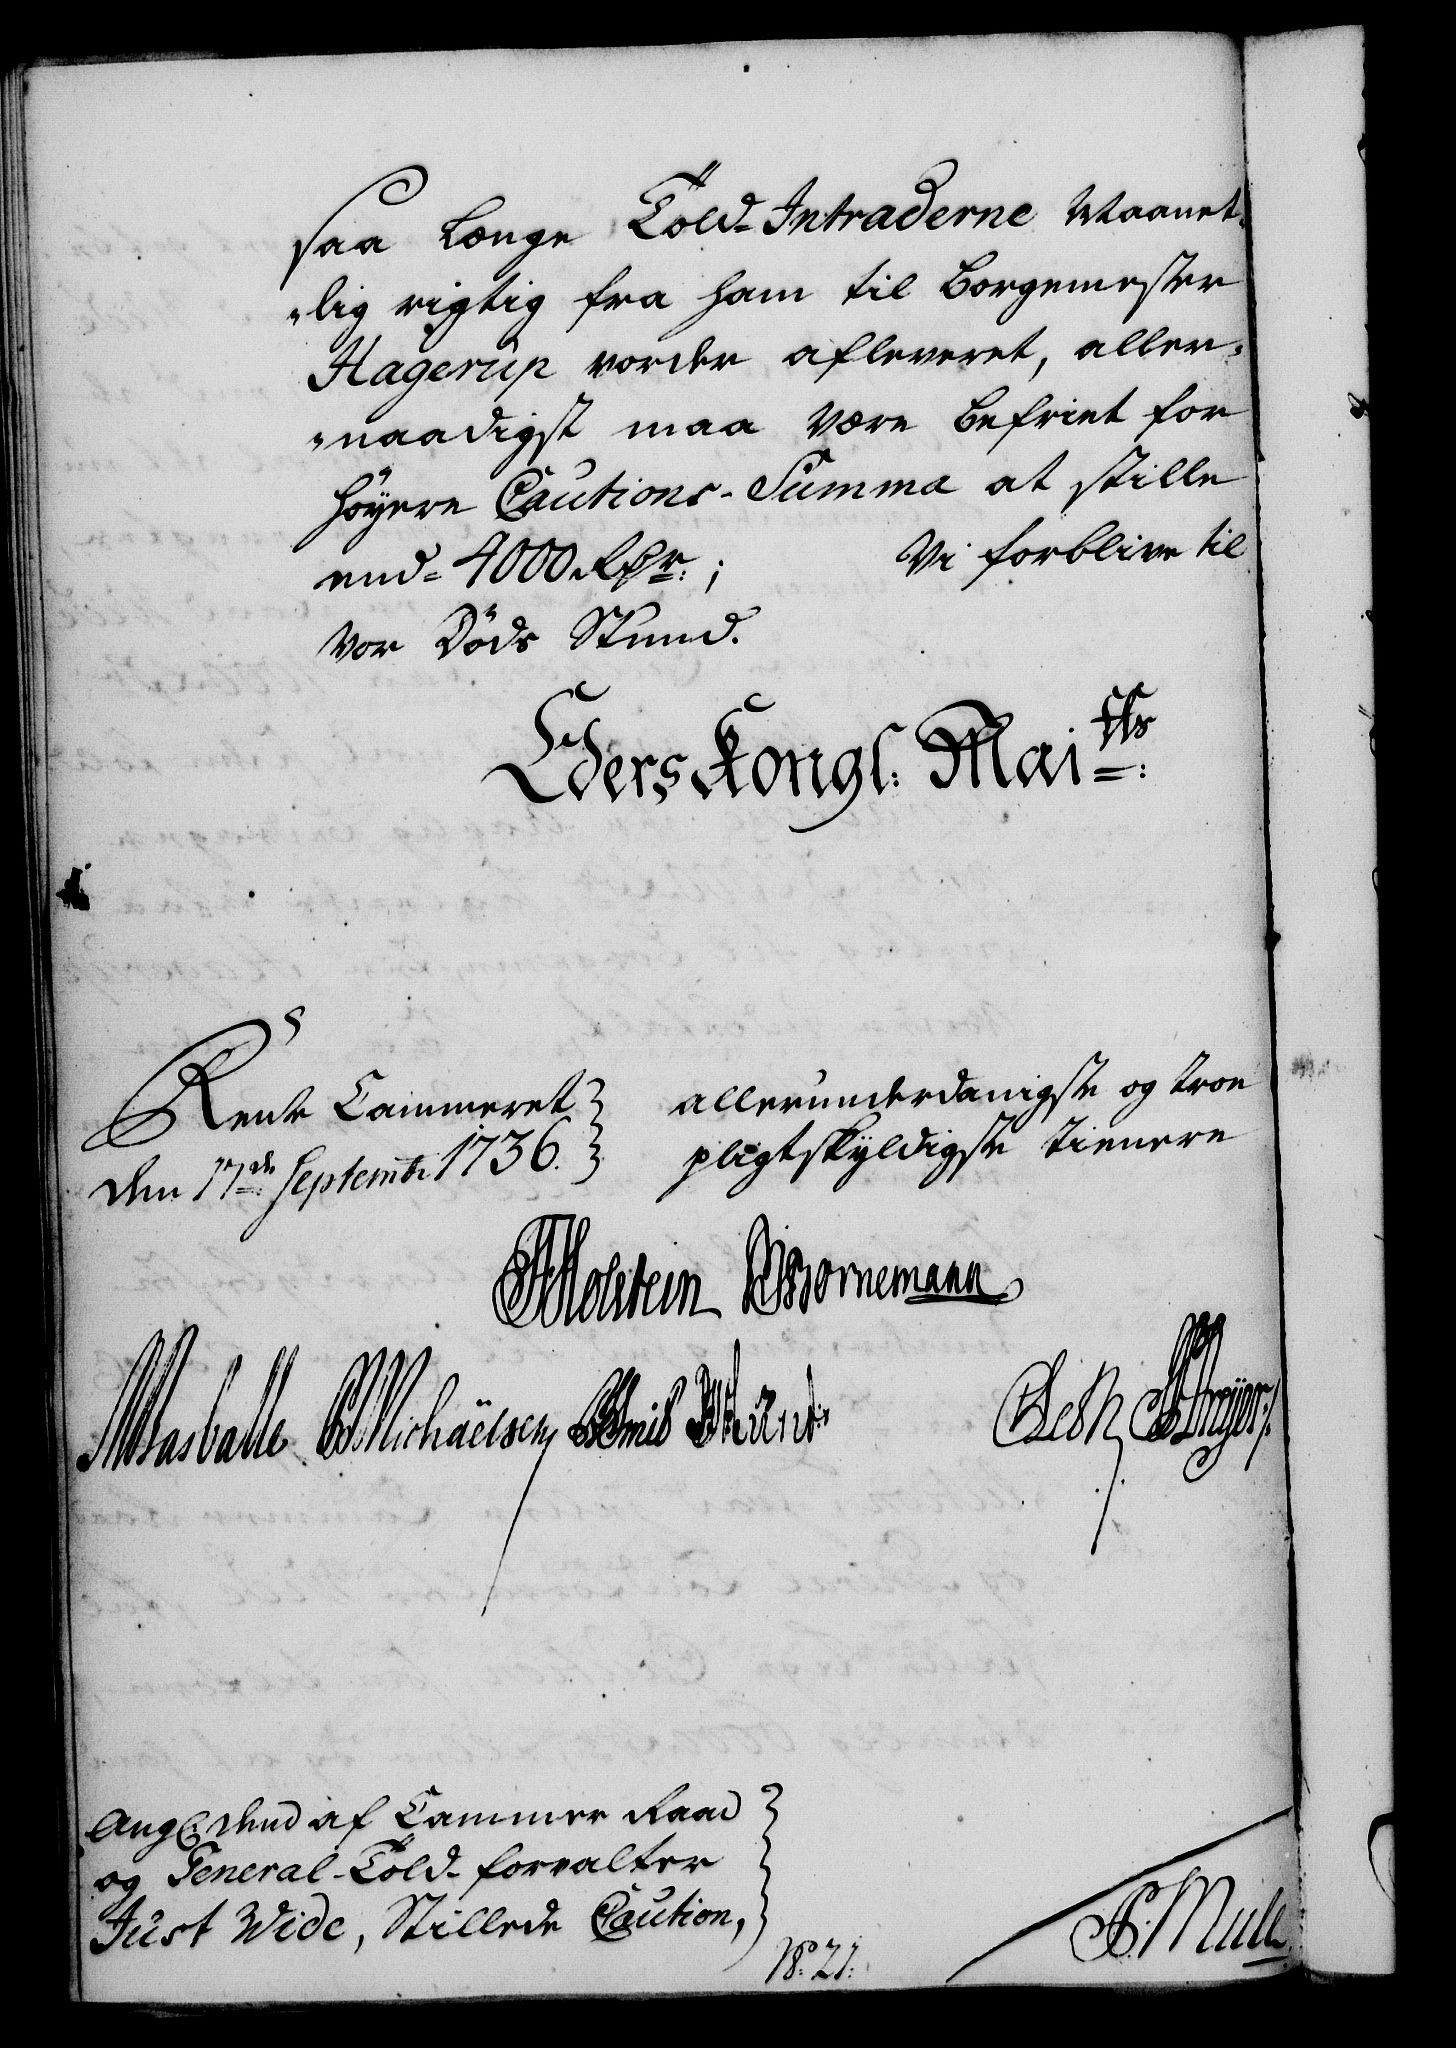 saa længe Told-Intraderne Maanet-
lig rigtig fra ham til Borgemester
Hagerup vorder afleveret, aller-
naadigst maa være befriet for
höyere Cautions-Summa at stille
end 4000 Rdr.; Vi forblive til
vor Döds Stund.
Eders Kongl: Mai<sup>tts</sup>:
Rente Cammeret
den 17<sup>de</sup> Septembr: 1736.
allerunderdanigste og troe
pligtskyldigste tienere
Holstein Bornemann
Wasballe Michaëlsen
F. Müll
Ang: den af Cammer Raad
og General-Told-forvalter
Just Wide, Stillede Caution,
No: 21: